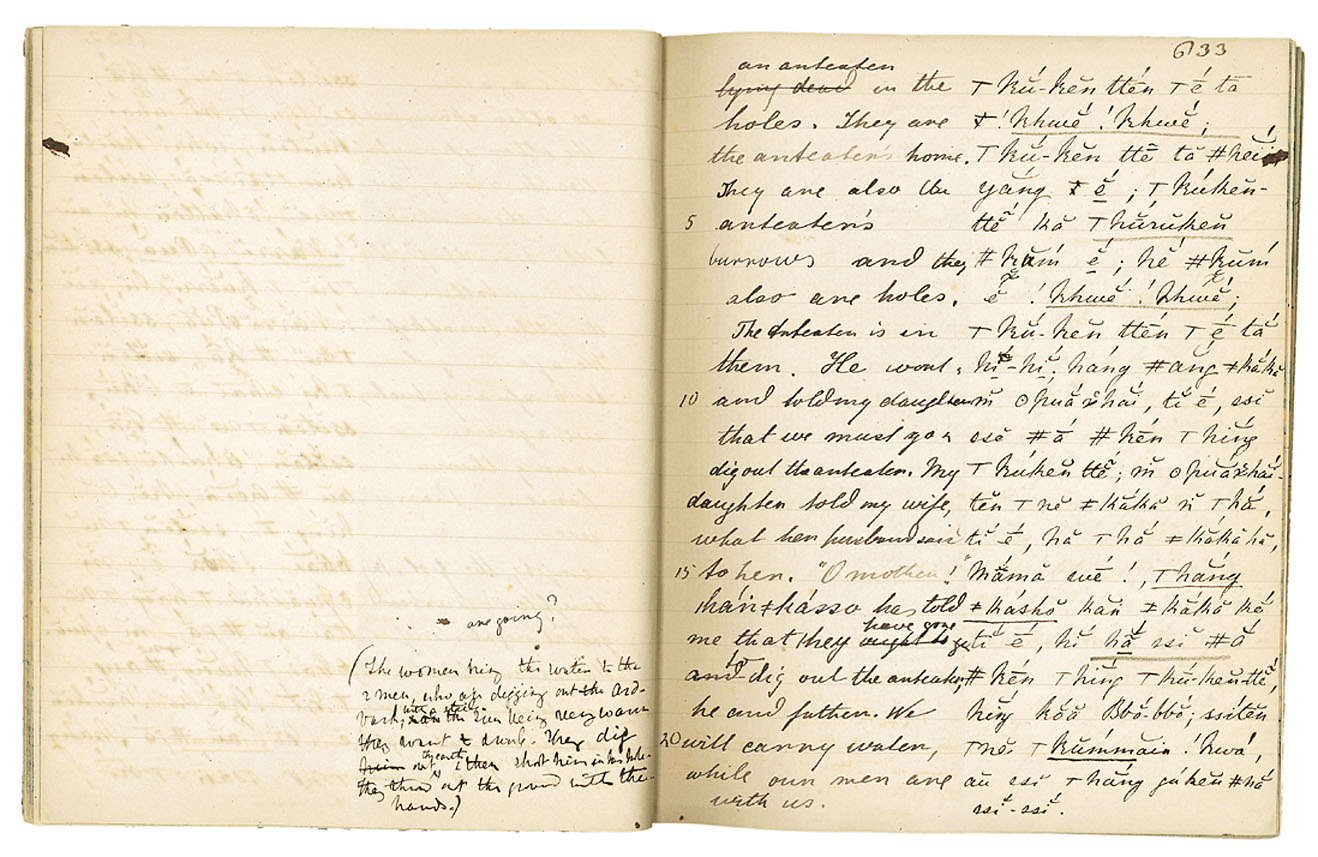 are going?
(The women bring the water to the
2 men, who are digging out the ard-
vark; with a stick. the sun being very warm
they want to drink. They dig
him out the earth & then shoot him in his hole.
they throw out the ground with the
hands.)
633
an anteater
lying dead in the ⊤ kŭ́-kĕn ttĕ́n ⊤ é tā
holes. They are ! khwĕ́ ! khwĕ́;
the anteater's home. ⊤ kŭ́-kĕn ttĕ̄ tā #
They are also the yáng é; ⊤ kúkĕn-
5 anteater's ttĕ́ kă ⊤ hŭ́rŭkĕn
burrows and they # kŭ́m é; hĕ́ # kŭ́m
also are holes. ĕ́ ! khwĕ́ ! khwĕ́;
The Anteater is in ⊤ kŭ́-kĕn ttĕ́n ⊤ é tā
them. He went hĭ́-hĭ́; háng # ăng ≠kăkă
10 and told my daughter n̆ ʘpuáxhăi, tĭ é, ssĭ
that we must go & ssĕ # ā́ # kĕ́n ⊤ hĭ́ng
dig out the anteater. My ⊤ kŭ́kĕn ttĕ̄; n̆ ʘpuáxhăi-
daughter told my wife, tĕn ⊤ nĕ ≠ kăkă n̆ ⊤ hă,
what her husband said tĭ́ é, hă ⊤ hă ≠ kăkă hă,
15 to her. "O mother! "Mămă wĕ́!, ⊤ hăng
ǀhán≠kásso has told ≠ káshŏ kăn ≠ kăkă kĕ́
me that they have gone ought to go tĭ é, hĭ́ hắ ssĭ # ā́
and to dig out the anteater, # kĕ́n ⊤ hĭ́ng ⊤ kŭ́-kĕn-ttĕ̄,
he and father. We hĭ́ng kŏ́ā Bbŏ́-bbŏ; ssĭtĕn
20 will carry water, ⊤ nĕ́ ⊤ kŭ́mmăin ! kwá,
while our men are aŭ ssĭ ⊤ hăng gúkĕn # hă
with us. ssĭ-ssĭ.